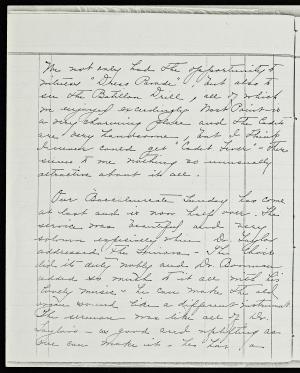 We not only had the opportunity to
witness "Dress Parade", but also to
see the Batallion Drill, all of which
we enjoyed exceedingly. West Point is
a very charming place and the Cadets
are very handsome, but I think
I never could get "Cadet Fever" - there
seems to me nothing so unusually
attractive about it all.
Our Baccalaureate Sunday has come
at last and is now half over. The
service was beautiful and very
solemn especially when Dr. Taylor
addressed the Seniors - The Choir
did its duty nobly and Dr.
added so much to it all with his
lovely music - he can make the old
organ sound like a different instrument
The sermon was like all of Dr.
Taylor's - as good and uplifting as
one can make it - he has a